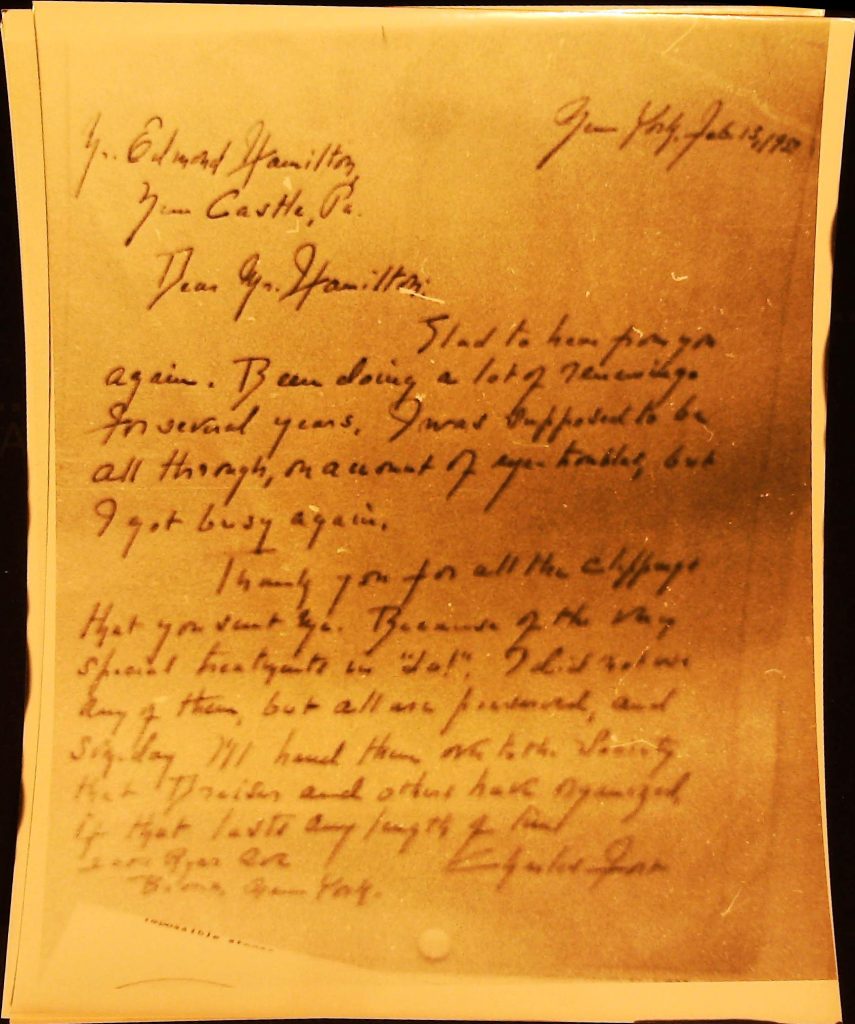 New York, Feb. 15, 193
Mr. Edmond Hamilton,
New Castle, Pa.
Dear Mr. Hamilton:
Glad to hear from you
again. Been doing a lot of
for several years. I was supposed to be
all through, on account of eye troubles, but
I got busy again.
Thank you for all the clippings
that you sent me. Because of the very
special treatments in "Lo!", I did not use
any of them, but all are preserved, and
someday I'll hand them over to the Society
that Dreiser and others have organized,
if that lasts any length of time
Ryer Ave
Charles Fort
Bronx, New York.
impossible